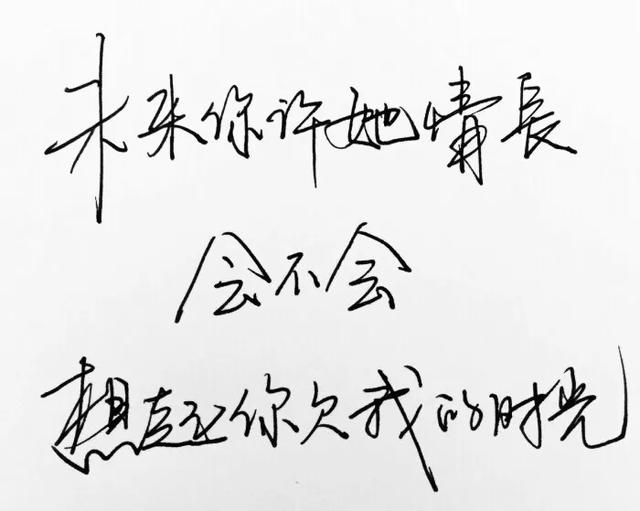 未来你许她情長
会不会
想起你欠我的时光